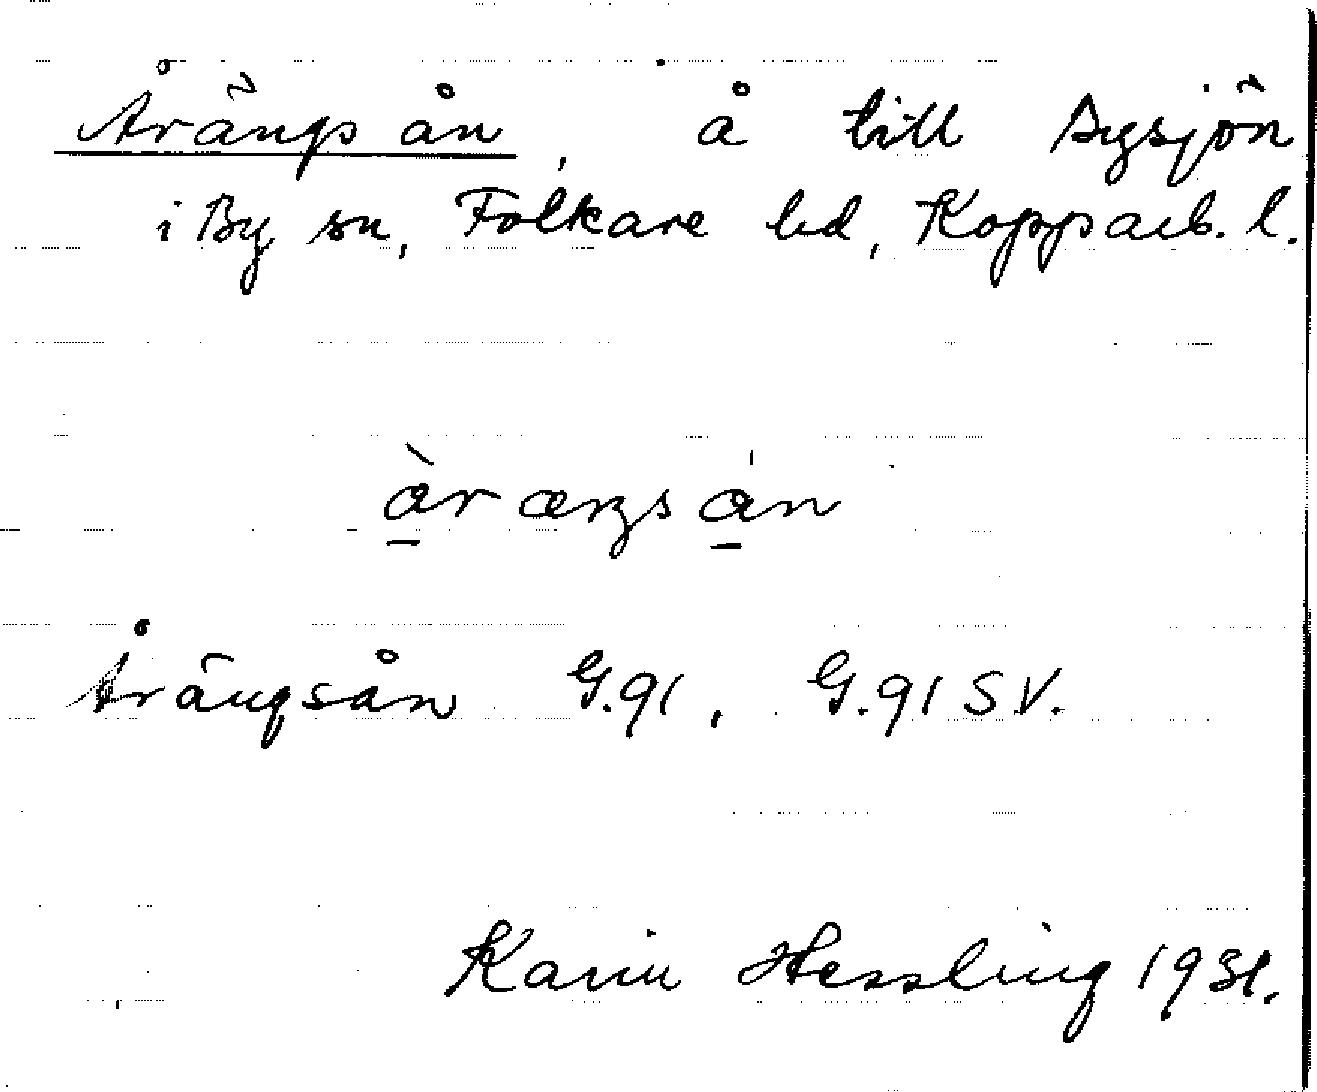 Årängsån, å till Bysjön
i By sn, Folkare hd, Kopparb. l.
àræŋsán
Årängsån G.91, G.91 SV.
Karin Hessling 1931.